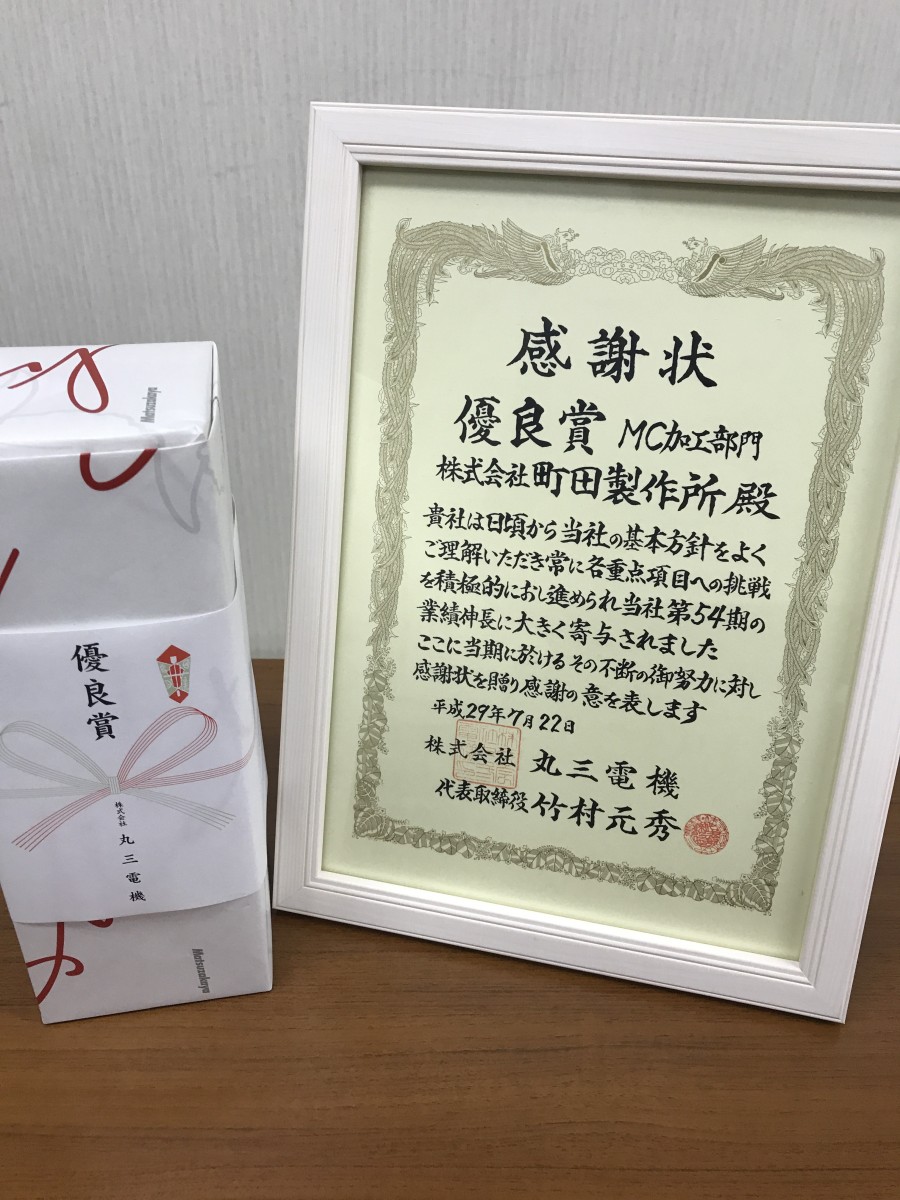 感謝状
優良賞 MC加工部門
株式会社町田製作所 殿
貴社は日頃から当社の基本方針をよく
ご理解いただき常に各重点項目への挑戦
を積極的におし進められ当社第54期の
業績伸長に大きく寄与されました
ここに当期に於けるその不断の御努力に対し
感謝状を贈り感謝の意を表します
平成29年7月22日
株式会社 丸三電機
代表取締役 竹村元秀
Matsuzakaya
優良賞
株式会社 丸三電機
Matsuzakaya